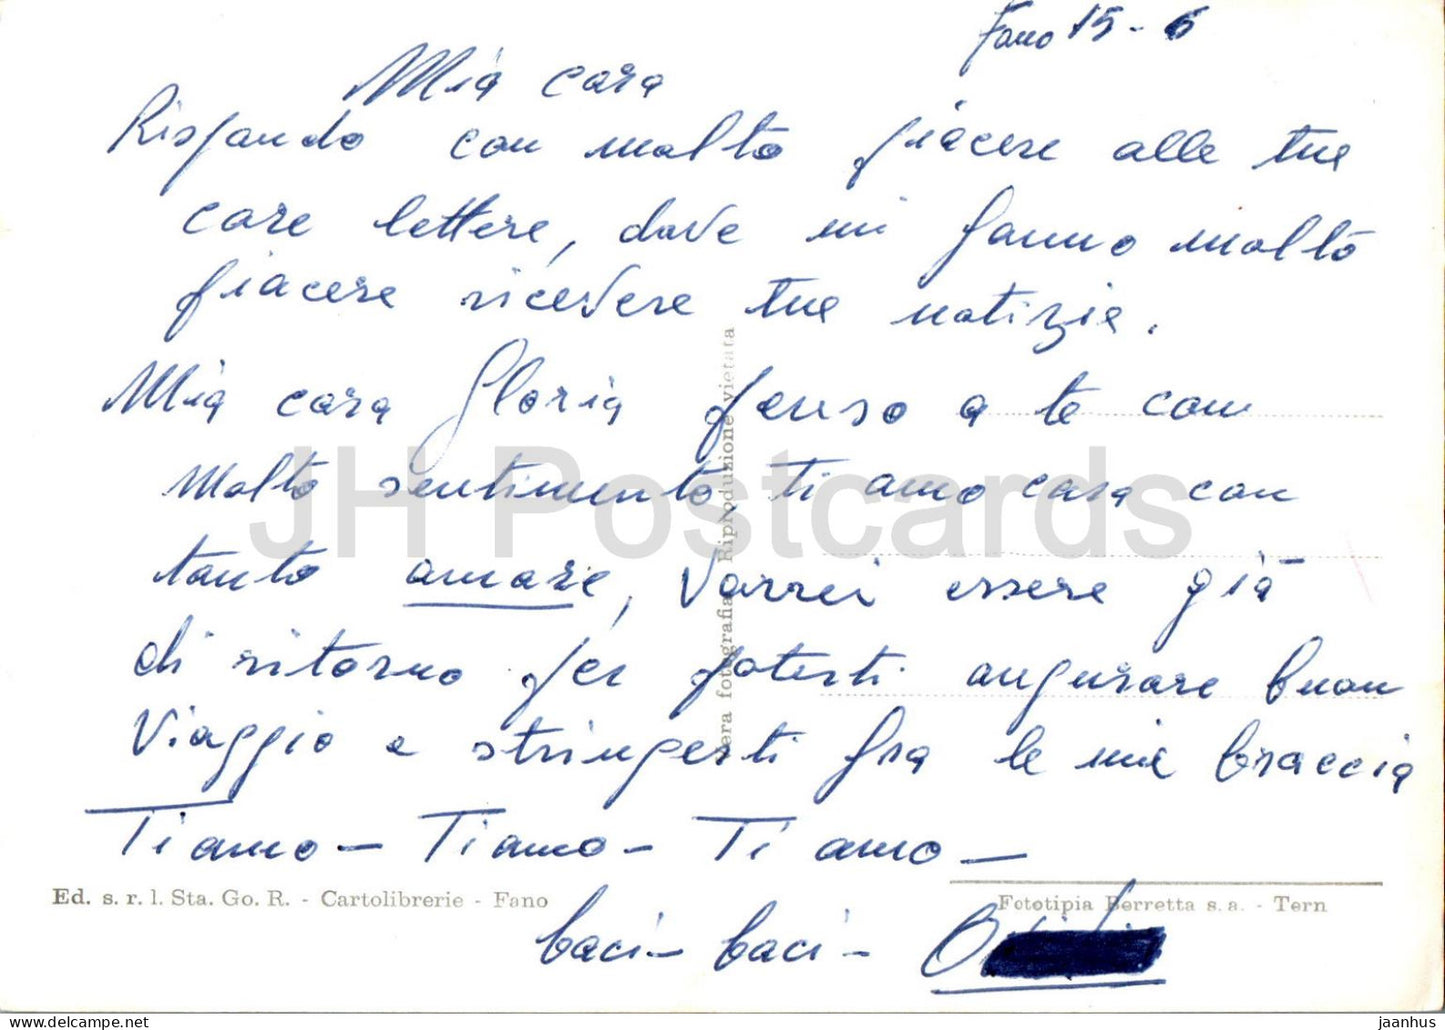 Fano 15-6
Mia cara
Rispondo con molto piacere alle tue
care lettere, dove mi fanno molto
piacere ricevere tue notizie.
Mia cara Gloria penso a te con
molto sentimento, Ti amo cara con
tanto amore, Vorrei essere già
di ritorno per poterti augurare buon
Viaggio e stringerti fra le mie braccia
Ti amo - Ti amo - Ti amo -
baci - baci -
Ed. s. r. l. Sta. Go. R. - Cartolibrerie - Fano
Fototipia Berretta s. a. - Tern
era fotografia - Riproduzione vietata
JH Postcards
jaanhus / delcampe.net